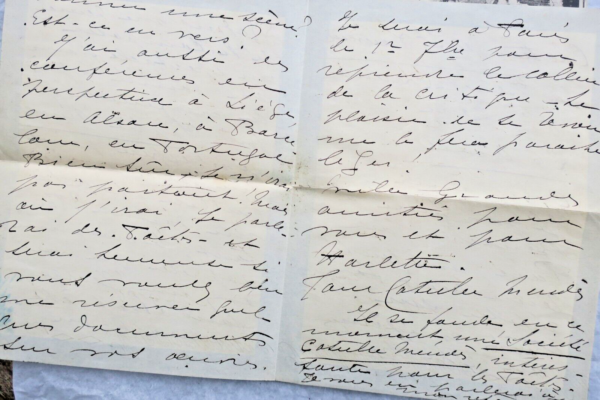 donner une scène?
Est-ce en vers?
J'ai aussi des
conférences en
perspective à Liège
en Alsace, à Barce
lone, en Portugal
Bien sûr je n'irai
pas partout. Mais
où j'irai je parle-
rai des Poètes - et
serai heureuse si
vous voulez bien
me réserver quel
ques documents
sur vos œuvres.
Je serai à Paris
le 1er 7bre pour
reprendre le collier
de la critique - Le
plaisir de se revoir
me le fera paraître
léger!
Mille grandes
amitiés pour
vous et pour
Harlette.
Jane Catulle Mendès
Il se fonde en ce
moment une Société
Catulle Mendès, intéres-
sante pour les Poètes